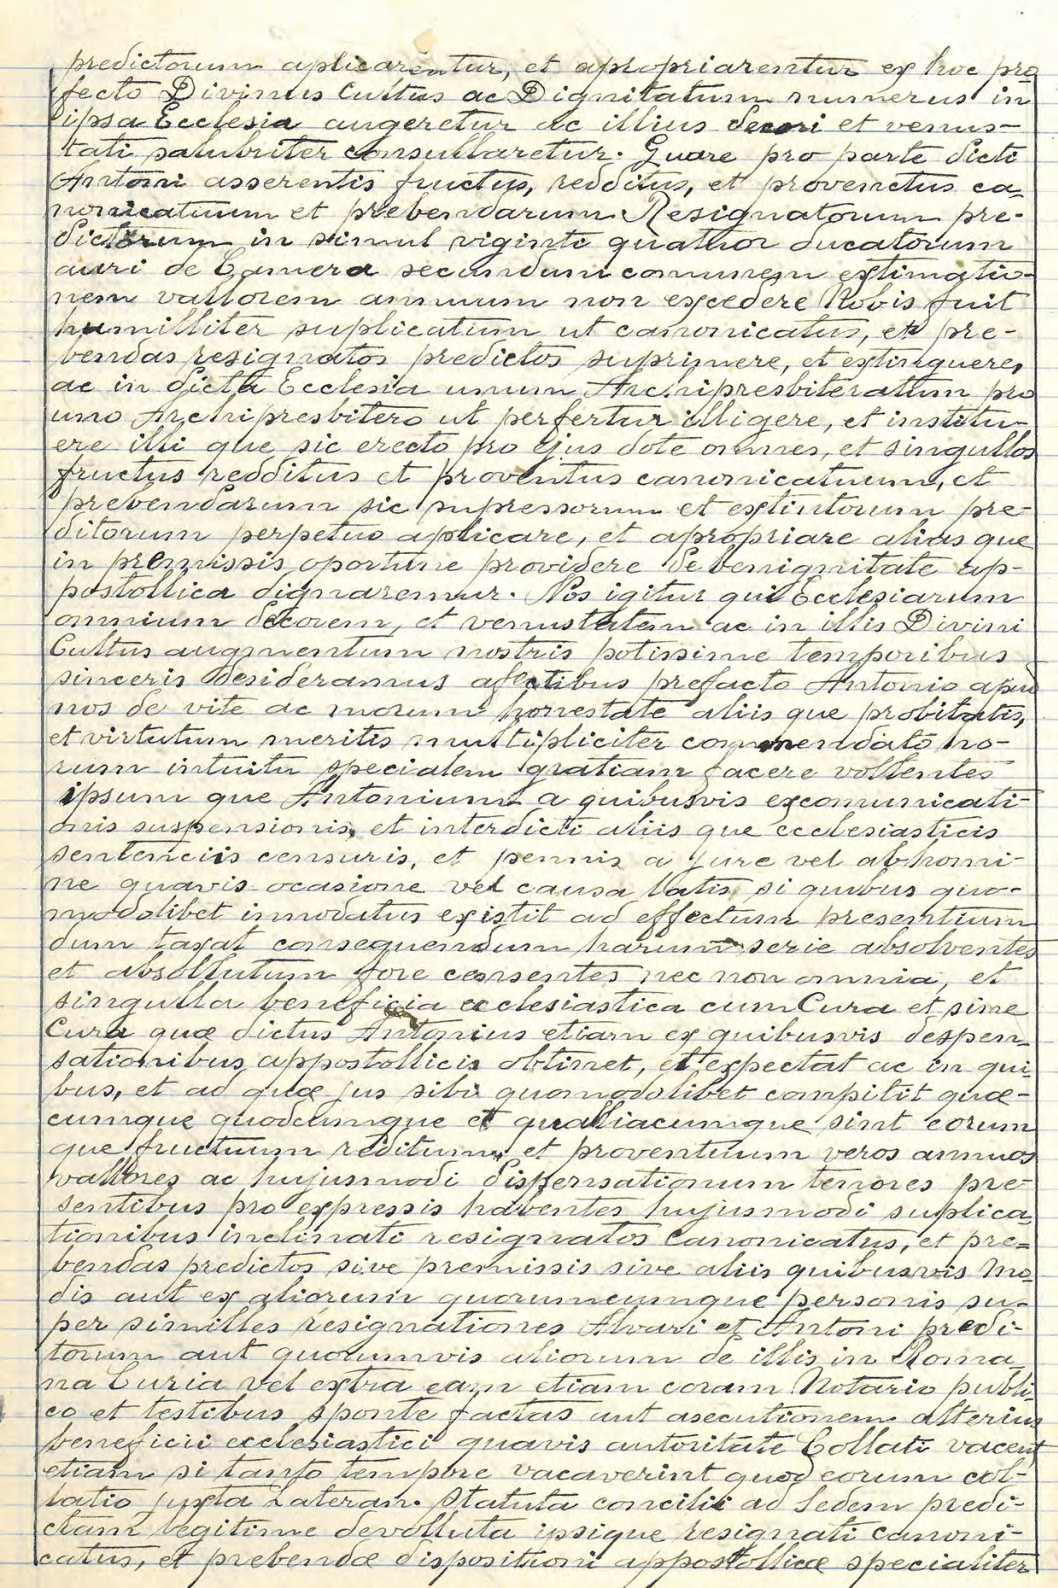 predictorum aplicarentur, et apropriarentur ex hoc pro
fecto Divinus Cultus ac Dignitatum numerus in
ipsa Ecclesia augeretur ac illius decori et venus-
tati salubriter consullaretur. Quare pro parte dicti
Antoni asserentis fructus, redditus, et provenctus ca-
nonicatuum et prebendarum Resignatorum pre-
dictorum in simul viginti quatuor ducatorum
auri de Camera secundum comunem extimatio-
nem vallorem annuum non excedere Nobis fuit
humilliter suplicatum ut canonicatus, et pre-
bendas resignatos predictos suprimere, et extinguere,
ac in dicta Ecclesia unum Archipresbiteratum pro
uno Archipresbitero ut perfertur illigere, et institu-
ere illi que sic erecto pro ejus dote omnes, et singullos
fructus redditus et proventus canonicatuum, et
prebendarum sic supressorum et extintorum pre-
ditorum perpetuo aplicare, et apropriare alias que
in premissis oportune providere de benignitate ap-
postollica dignaremur. Nos igitur qui Ecclesiarum
omnium decorem, et venustatem ac in illis Divini
Cultus augmentum nostris potissime temporibus
sinceris desideramus afectibus prefacto Antonio apud
nos de vite ac morum honestate aliis que probitatis,
et virtutum meritis multipliciter commendato ho-
rum intuitu specialem gratiam facere vollentes
ipsum que Antonium a quibusvis excomunicati-
onis suspensionis, et interdicti aliis que ecclesiasticis
sentenciis censuris, et pennis a jure vel ab homi-
ne quavis ocasione vel causa latis si quibus quo-
modolibet innodatus existit ad effectum presentium
dum taxat consequendum harum serie absolventes
et absollutum fore censentes nec non omnia, et
singulla beneficia ecclesiastica cum Cura et sine
Cura quæ dictus Antonius etiam ex quibusvis despen-
sationibus appostollicis obtinet, et expectat ac in qui-
bus, et ad quæ jus sibi quomodolibet compitit quæ-
cumque quodcumque et qualiacumque sint eorum
que fructuum redituum, et proventuum veros annuos
vallores ac hujusmodi dispensationum tenores pre-
sentibus pro expressis habentes hujusmodi suplica-
tionibus inclinati resignatos Canonicatus, et pre-
bendas predictos sive premissis sive aliis quibusvis mo-
dis aut ex aliorum quorumcumque personis su-
per similles resignationes Alvari et Antoni predi-
torum aut quorumvis aliorum de illis in Roma-
na Curia vel extra eam etiam coram Notario publi-
co et testibus sponte factas aut asecutionem alterius
beneficii ecclesiastici quavis autoritate Collati vacent
etiam si tanto tempore vacaverint quod eorum col-
latio juxta Lateran. Statuta concilii ad Sedem predi-
ctam legitime devolluta ipsique resignati canoni-
catus, et prebendæ dispositioni appostollicæ specialiter